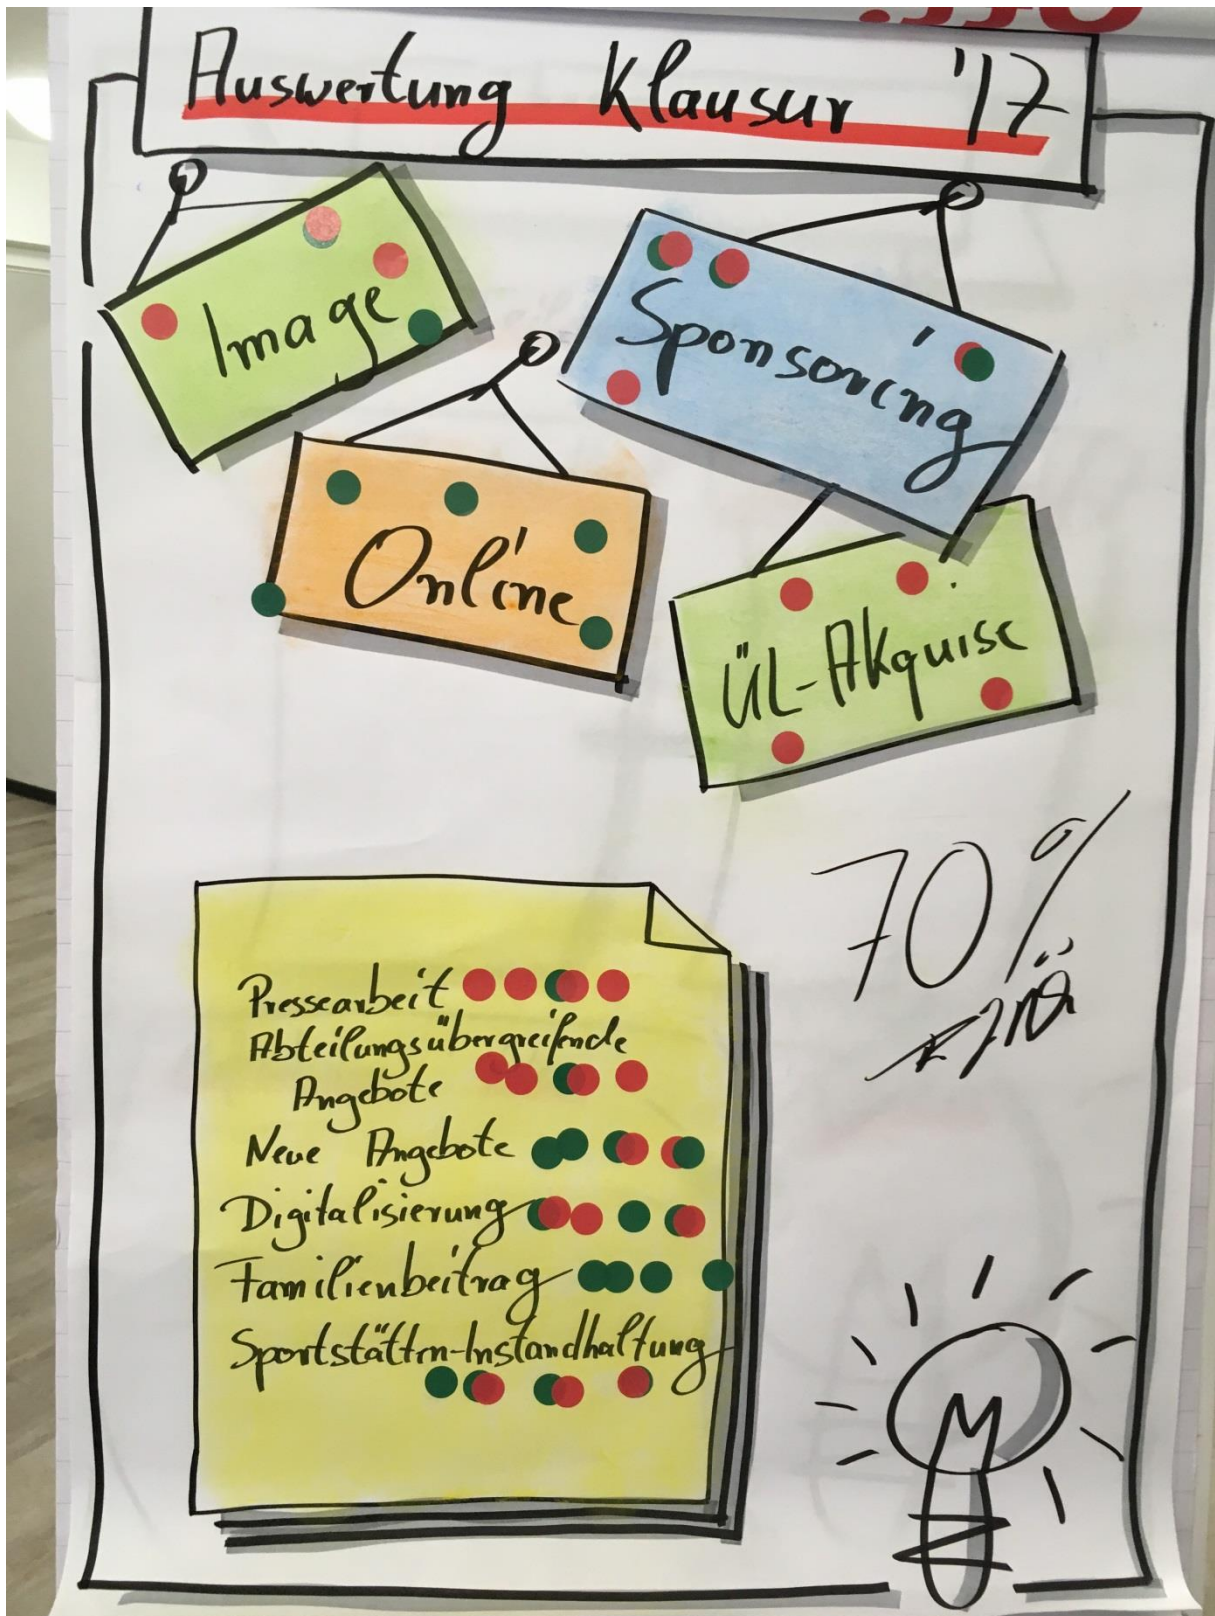 Auswertung Klausur '17
Image
Sponsoring
Online
ÜL-Akquise
70%
Pressearbeit
Abteilungsübergreifende
Angebote
Neue Angebote
Digitalisierung
Familienbeitrag
Sportstätten-Instandhaltung